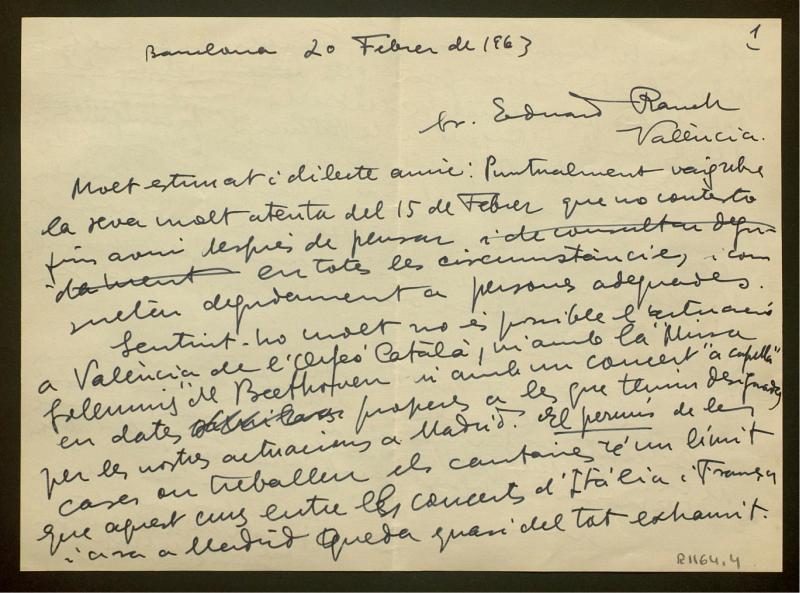 1
Barcelona 20 Febrer de 1963
Sr. Eduard Ranch
València.
Molt estimat i dilecte amic: Puntualment vaig rebre
la seva molt atenta del 15 de Febrer que no contesto
fins avui després de pensar i de consultar degu-
dament en totes les circumstàncies, i con
sultar degudament a persones adequades.
Sentint-ho molt no és possible l'actuació
a València de l'Orfeó Català, ni amb la "Missa
Solemnis" de Beethoven ni amb un concert "a capella"
en dates properes a les que tenim designades
per les nostres actuacions a Madrid. El permís de les
cases on treballen els cantaires té un límit
que aquest any entre els concerts d'Itália i França
i ara a Madrid queda quasi del tot exhaurit.
R1164,4